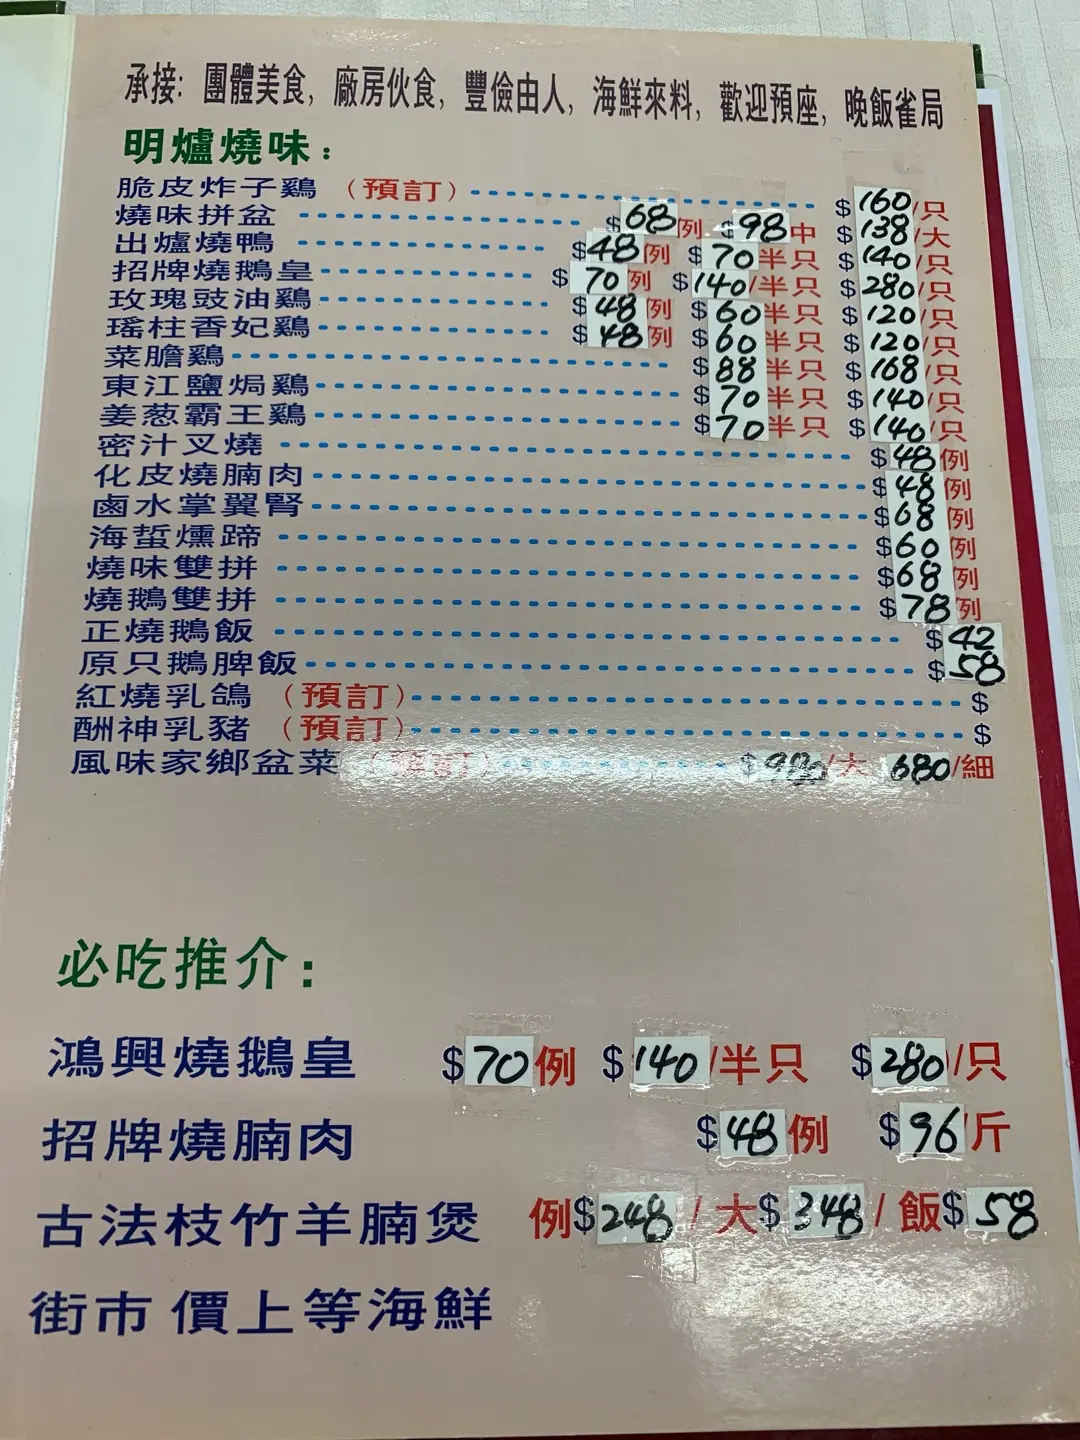 承接: 團體美食, 廠房伙食, 豐儉由人, 海鮮來料, 歡迎預座, 晚飯雀局
明爐燒味：
脆皮炸子鷄 (預訂) $160/只
燒味拼盆 $68例 $98中 $138/大
出爐燒鴨 $48例 $70半只 $140/只
招牌燒鵝皇 $70例 $140/半只 $280/只
玫瑰豉油鷄 $48例 $60半只 $120/只
瑤柱香妃鷄 $48例 $60半只 $120/只
菜膽鷄 $88半只 $168/只
東江鹽焗鷄 $70半只 $140/只
姜葱霸王鷄 $70半只 $140/只
密汁叉燒 $48例
化皮燒腩肉 $48例
鹵水掌翼腎 $68例
海蜇燻蹄 $60例
燒味雙拼 $68例
燒鵝雙拼 $78例
正燒鵝飯 $42
原只鵝脾飯 $58
紅燒乳鴿 (預訂) $
酬神乳豬 (預訂) $
風味家鄉盆菜 (預訂) $980/大 680/細
必吃推介：
鴻興燒鵝皇 $70例 $140/半只 $280/只
招牌燒腩肉 $48例 $96/斤
古法枝竹羊腩煲 例$248/大$348/飯$58
街市 價上等海鮮